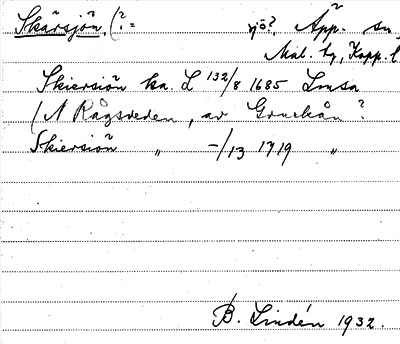 Skärsjön, (?: sjö?, Äpp. sn,
Mal. tg, Kopp. l
Skiersiön ka. L 132/8 1685 Lmsa
(N Rågsveden, av Gruckån?
Skiersiön „ -/13 1719 „
B. Lindén 1932.